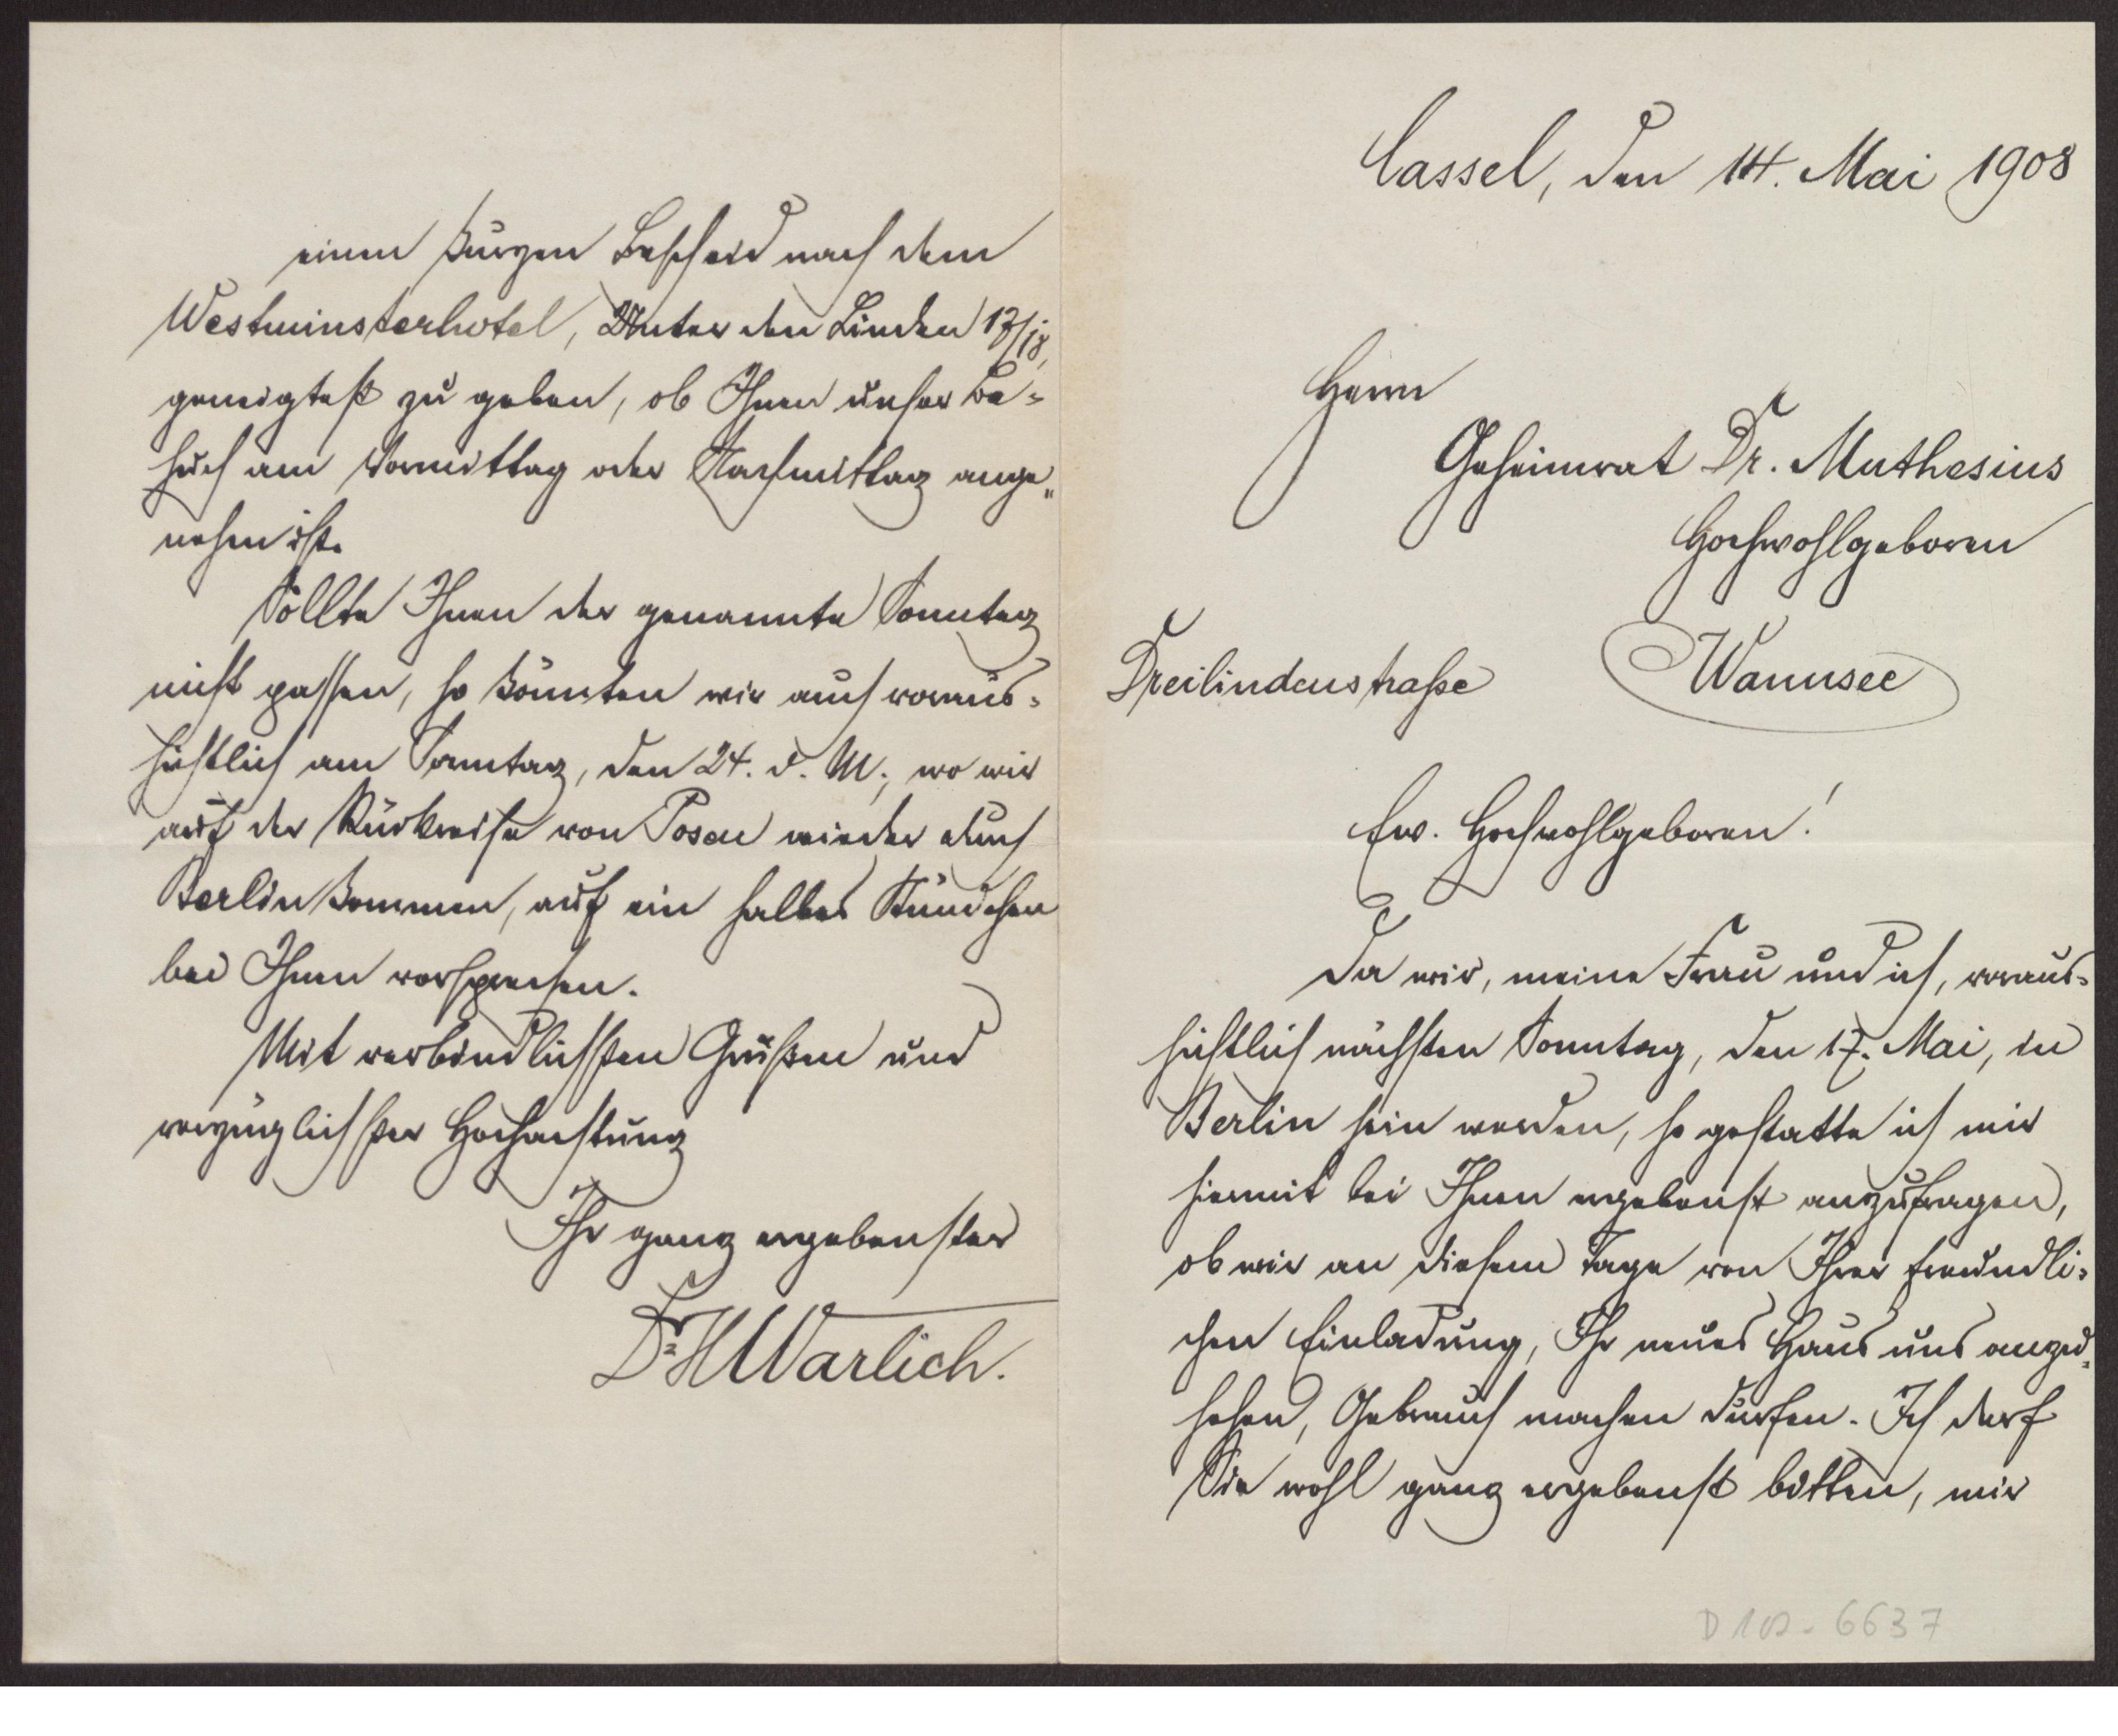 Cassel, den 14. Mai 1908
Herrn
Geheimrat Dr. Muthesius
Hochwohlgeboren
Dreilindenstraße Wannsee
Ew. Hochwohlgeboren!
Da wir, meine Frau und ich, voraus-
sichtlich nächsten Sonntag, den 17. Mai, in
Berlin sein werden, so gestatte ich mir
hiermit bei Ihnen ergebenst anzufragen,
ob wir an diesem Tage von Ihrer freundli-
chen Einladung, Ihr neues Haus uns anzu-
sehen, Gebrauch machen dürfen. Ich darf
Sie wohl ganz ergebenst bitten, mir
D 102-6637
einen kurzen Bescheid nach dem
Westminsterhotel, Unter den Linden 17/18,
geneigtest zu geben, ob Ihnen unser Be-
such am Vormittag oder Nachmittag ange-
nehm ist.
Sollte Ihnen der genannte Sonntag
nicht passen, so könnten wir auch voraus-
sichtlich am Sonntag, den 24. d. M., wo wir
auf der Rückreise von Posen wieder durch
Berlin kommen, auf ein halbes Stündchen
bei Ihnen vorsprechen.
Mit verbindlichsten Grüßen und
vorzüglichster Hochachtung
Ihr ganz ergebenster
Dr H Warlich.